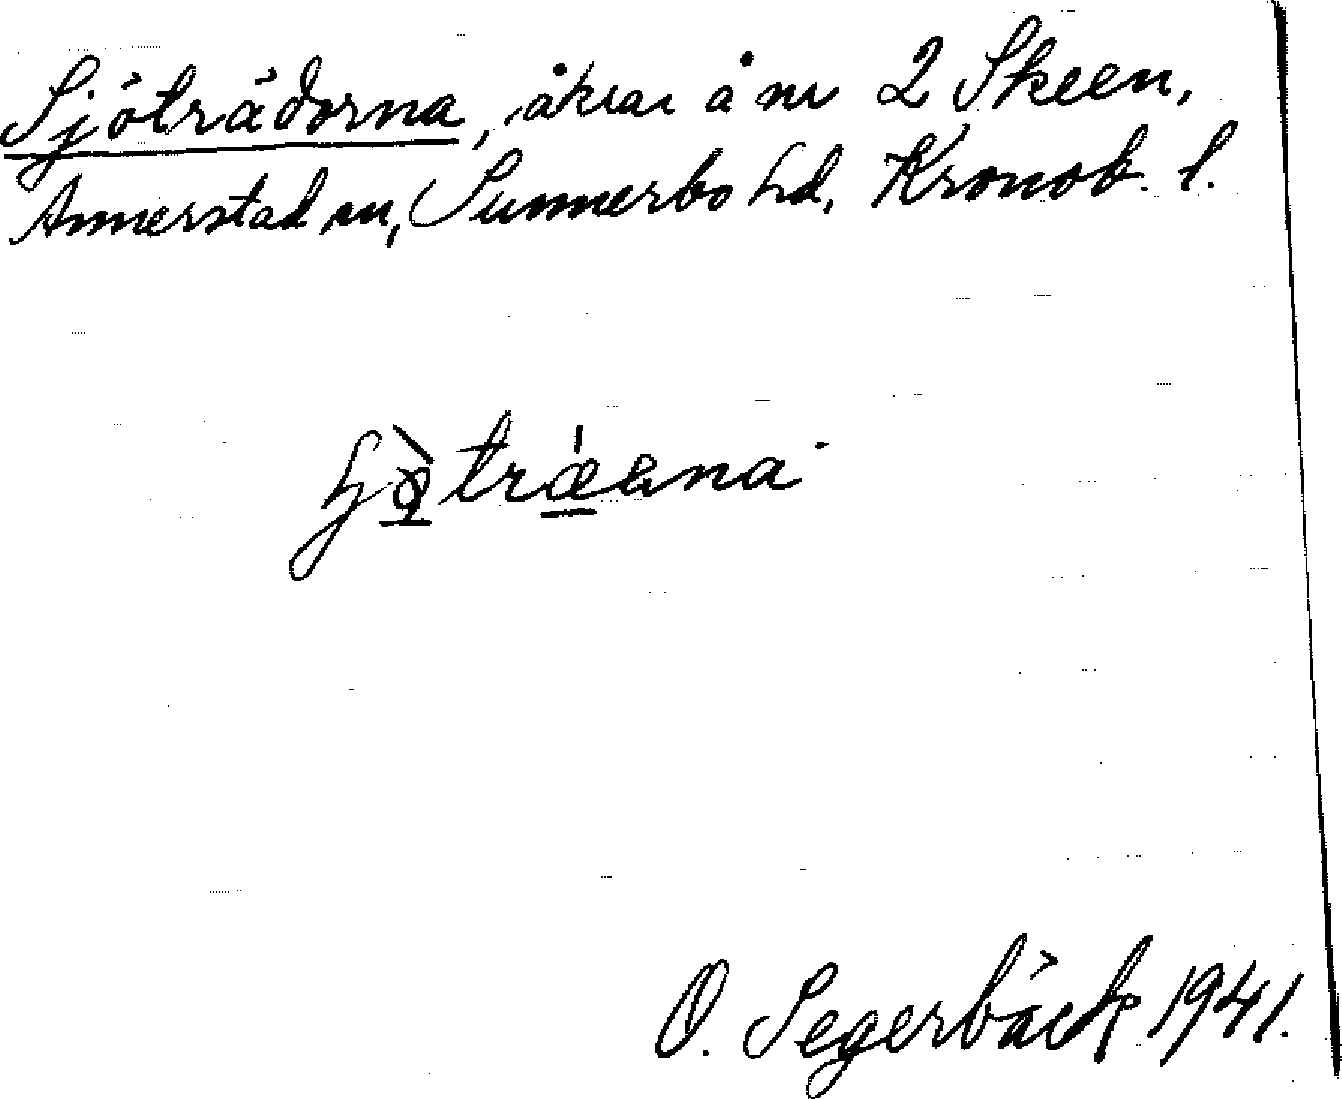 Sjöträdorna, åkrar å nr 2 Skeen,
Annerstad sn, Sunnerbo hd, Kronob. l.
O. Segerbäck 1941.